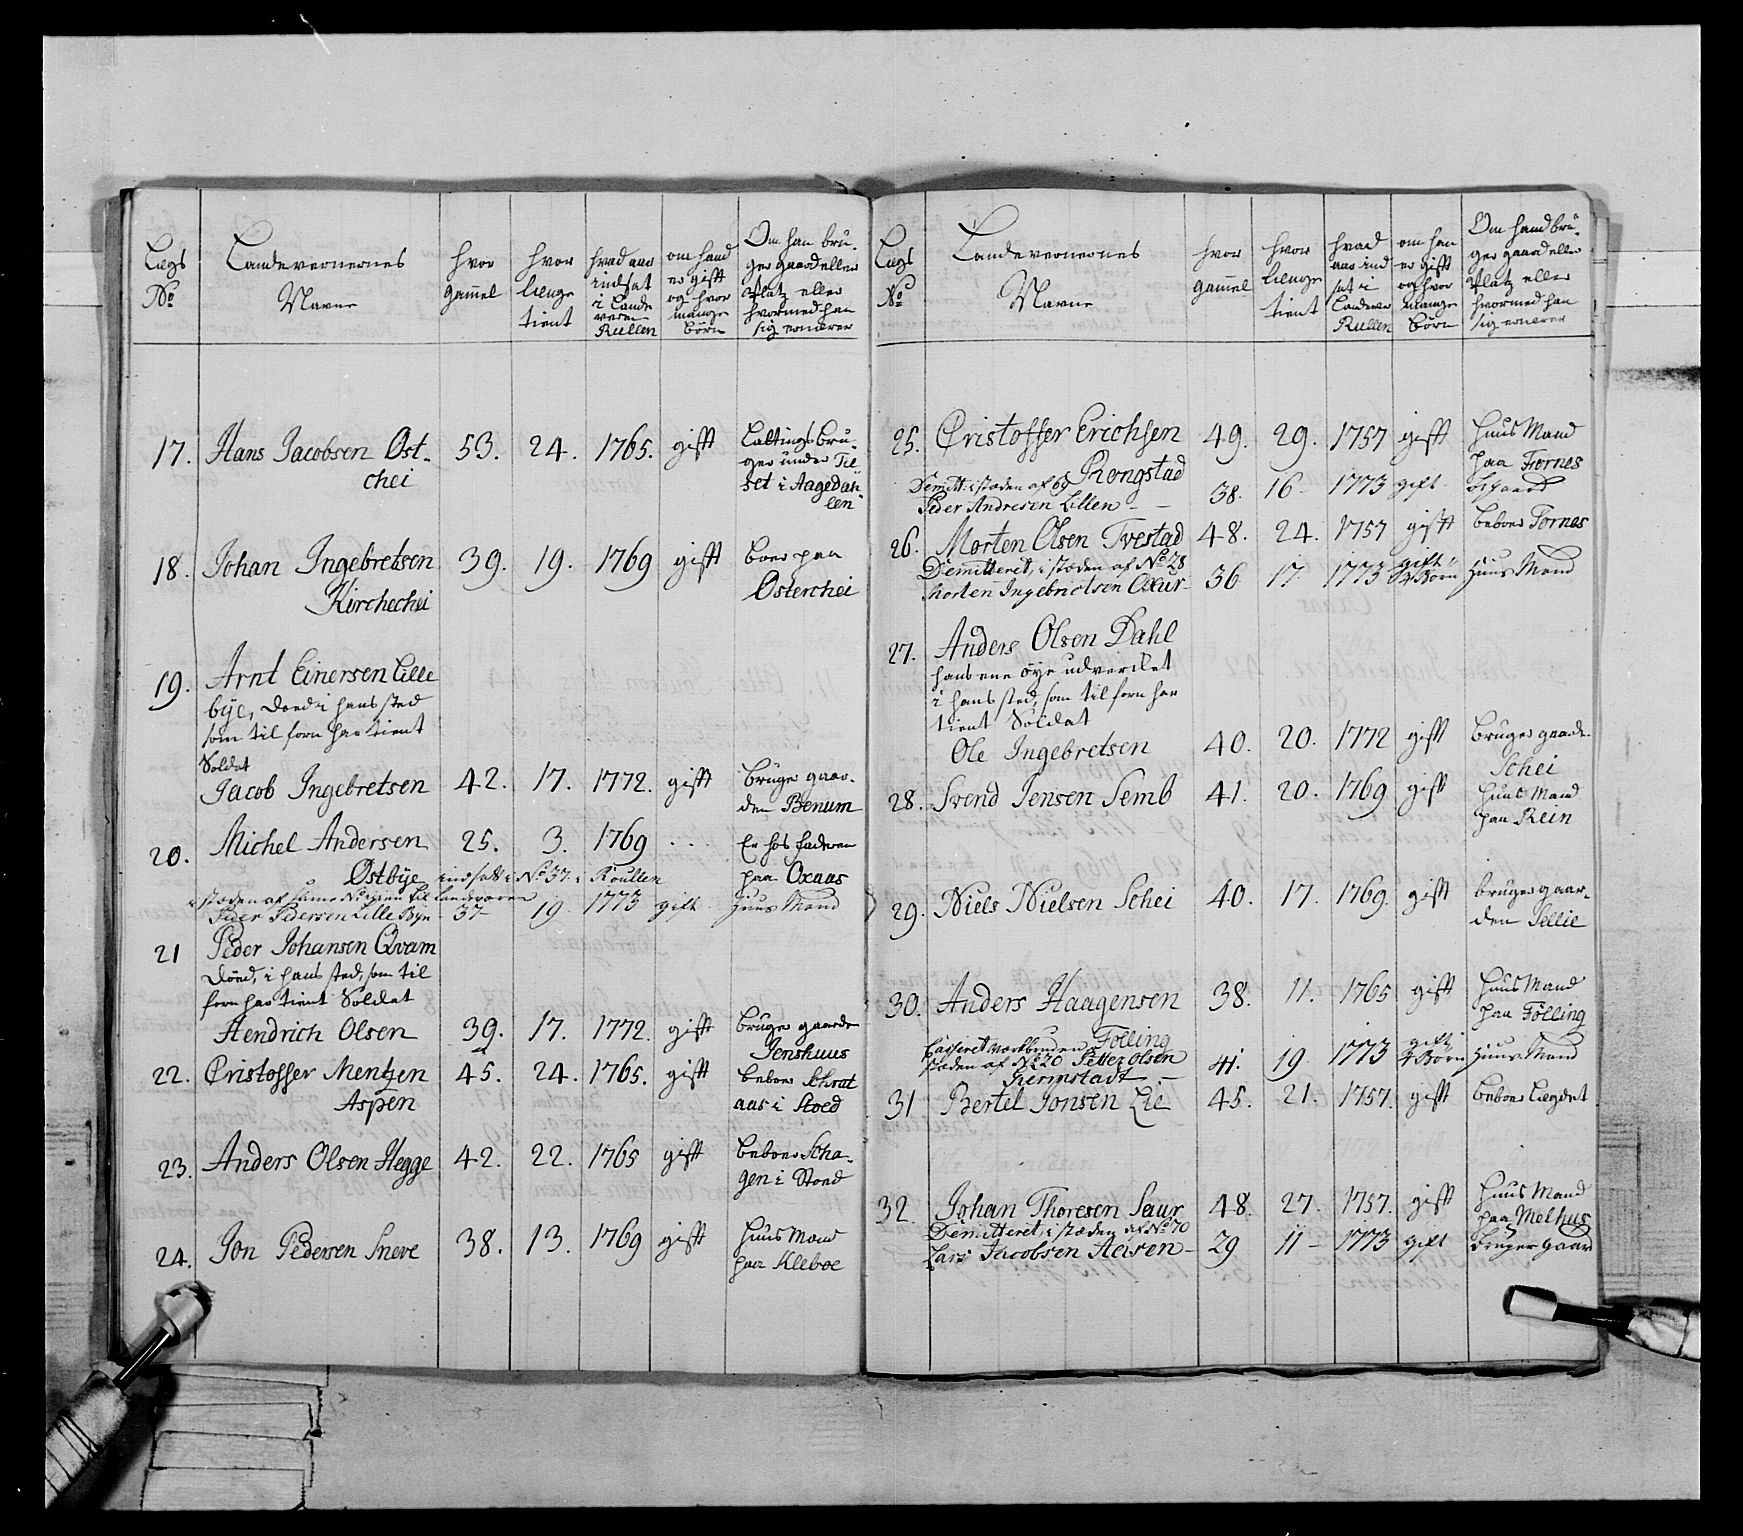 Lægs No | Landeverernes Navne | hvor gammel | hvor længe tient | hvad aar indsat i Lande veren Rullen | om hand er gift og hvor mange børn | Om han bruger gaard eller Platz eller hvormed han sig ernerer
17. Hans Jacobsen Øst- 53. 24. 1765. gifft Laltings bru-
chei ger under Til
set i Aagedah-
len
18. Johan Ingebretsen 39. 19. 1769 gifft boer paa
Kirchechei Østerchei
19. Arnt Einersen Lille
bye, døed i hans sted
som til forn har tient
Soldat
Jacob Ingebretsen 42. 17. 1772. gifft bruger gaar-
den Benum
20. Michel Andersen 25. 3. 1769 . . . Er hos faderen
Østbye indsatt i No 37. i Roullen paa Oxaas
i stæden af samme No igien til Landværen
Peder Pedersen Lille Bye 37 19 1773 gift Huus Mand
21 Peder Johansen Qvam
døed, i hans sted, som til
forn har tient Soldat
Hendrich Olsen 39. 17. 1772. gifft bruger gaarde
Jenshuus
22. Cristoffer Mentzen 45. 24. 1765. gifft beboer Schrat
Aspen aas i Stoed
23. Anders Olsen Hegge 42. 22. 1765 gifft beboer Scha-
gen i Stoed
24. Jon Pedersen Sneve 38. 13. 1769 gifft Huus Mand
paa Kleboe
Lægs No | Landeverernes Navne | hvor gammel | hvor længe tient | hvad aar ind sat i Landever Rullen | om han er gift og hvor mange børn | Om hand bruger gaard eller Platz eller hvormed han sig ernerer
25. Cristoffer Erichsen 49. 29. 1757 gifft Huus Mand
Rongstad paa Fornes
Demitt: i stæden af 69
Peder Andresen Lillen 38. 16 1773 gift
26. Morten Olsen Tvestad 48. 24. 1757 gifft beboer Fornes
Demitteret, i stæden af No 28
Morten Ingebrictsen Oxur 36 17 1773 gift 4 Børn Huus Mand
27. Anders Olsen Dahl
hans ene øye udverclet
i hans sted, som til forn har
tient Soldat
Ole Ingebretsen 40. 20. 1772 gifft bruger gaarde
Schei
28. Svend Jensen Semb 41. 20. 1769 gifft Huus Mand
paa Rein
29. Niels Nielsen Schei 40. 17. 1769. gifft bruger gaar-
den Sellie
30. Anders Haagensen 38. 11. 1765 gifft Huus Mand
Følling paa Følling
Casseret
stæden af No 20 Petter Olsen 41. 19. 1773 gift 4 Børn Huus Mand
31 Bertel Jonsen Lie 45. 21. 1757. gifft beboer Lægdet
32. Johan Thoresen Saur 48. 27. 1757. gifft Huus Mand
paa Melhus
Demitteret, i stæden af No 70
Lars Jacobsen Heisen 29 11 1773 gift Bruger Gaar